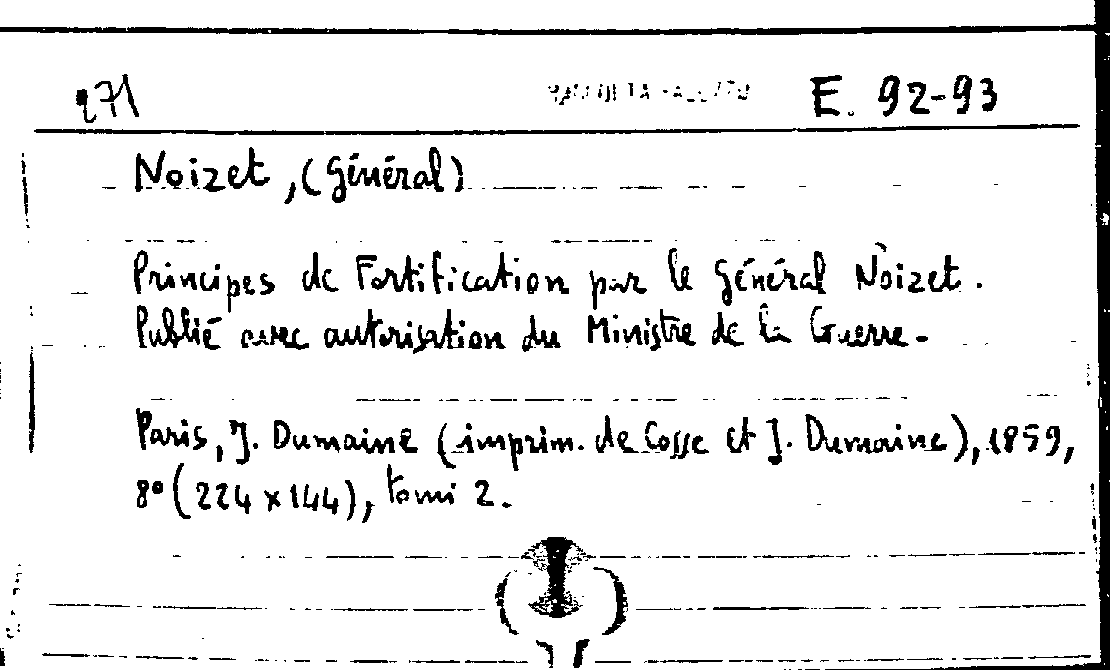 271 E. 92-93
Noizet, (Général)
Principes de Fortification par le Général Noizet.
Publié avec autorisation du Ministre de la Guerre.
Paris, J. Dumaine (imprim. de Cosse et J. Dumaine), 1859,
8° (224 x 144), tomi 2.